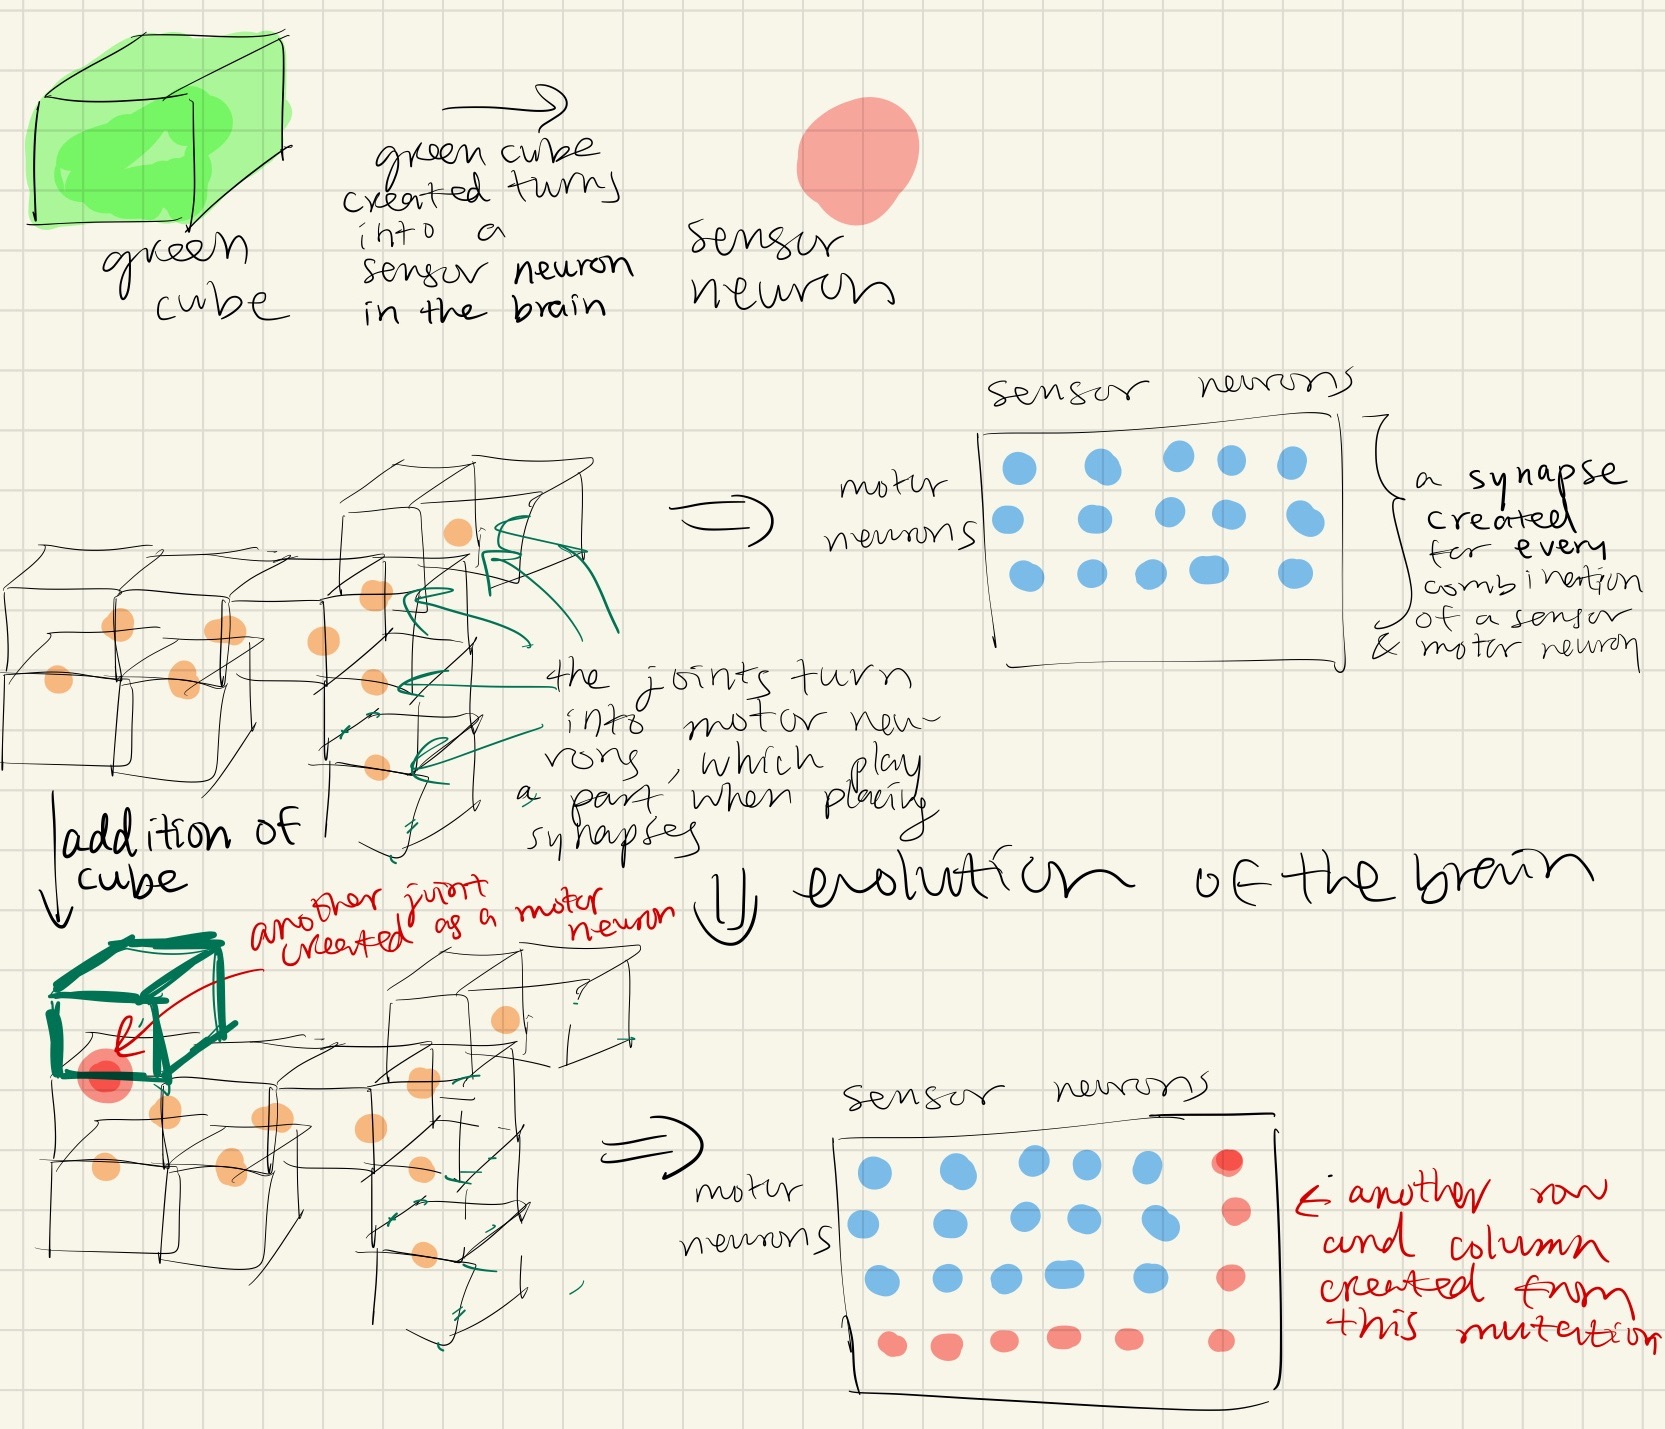 green
cube
green cube
created turns
into a
sensor neuron
in the brain
sensor
neuron
sensor neurons
motor
neurons
a synapse
created
for every
combination
of a sensor
& motor neuron
the joints turn
into motor neu-
rons, which play
a part when placing
synapses
addition of
cube
evolution of the brain
another joint
created as a motor
neuron
sensor neurons
motor
neurons
another row
and column
created from
this mutation